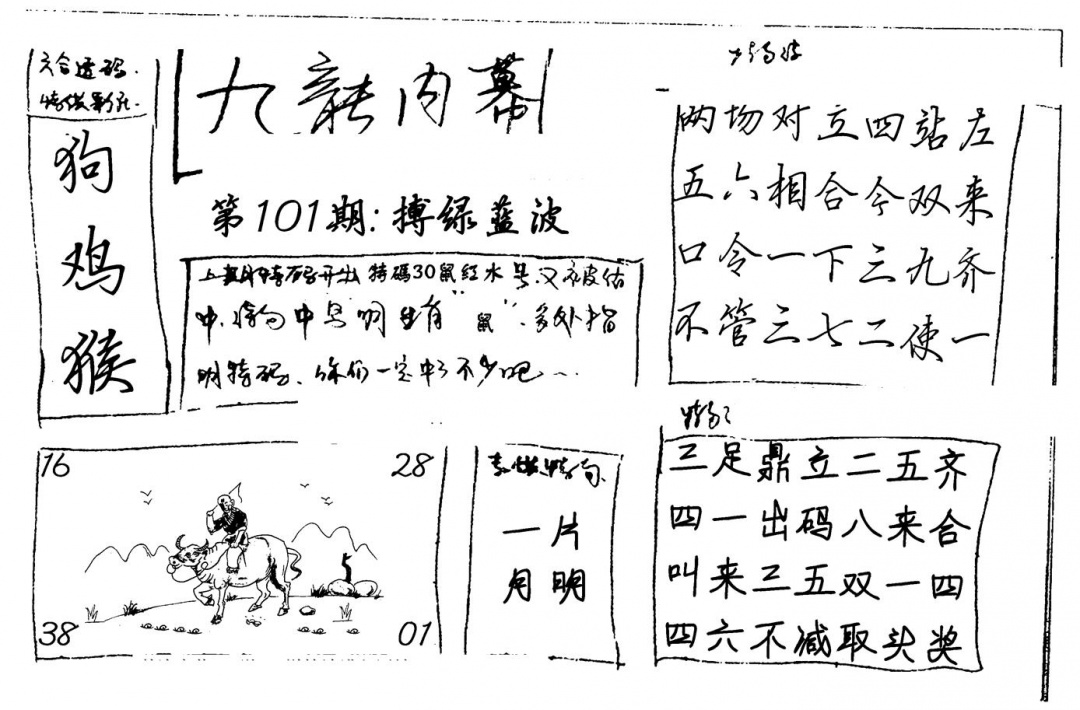 六合透码
狗
鸡
猴
九龍内幕
第101期:搏绿蓝波
上期特码开出特碼30鼠红水号又被估
中.特句中号明生肖"鼠".多处指
明特码.你们一定中了不少吧
两场对立四站左
五六相合今双来
口令一下三九齐
不管三七二使一
16
28
38
01
一片
月明
三足鼎立二五齐
四一出码八来合
叫来三五双一四
四六不减取头奖